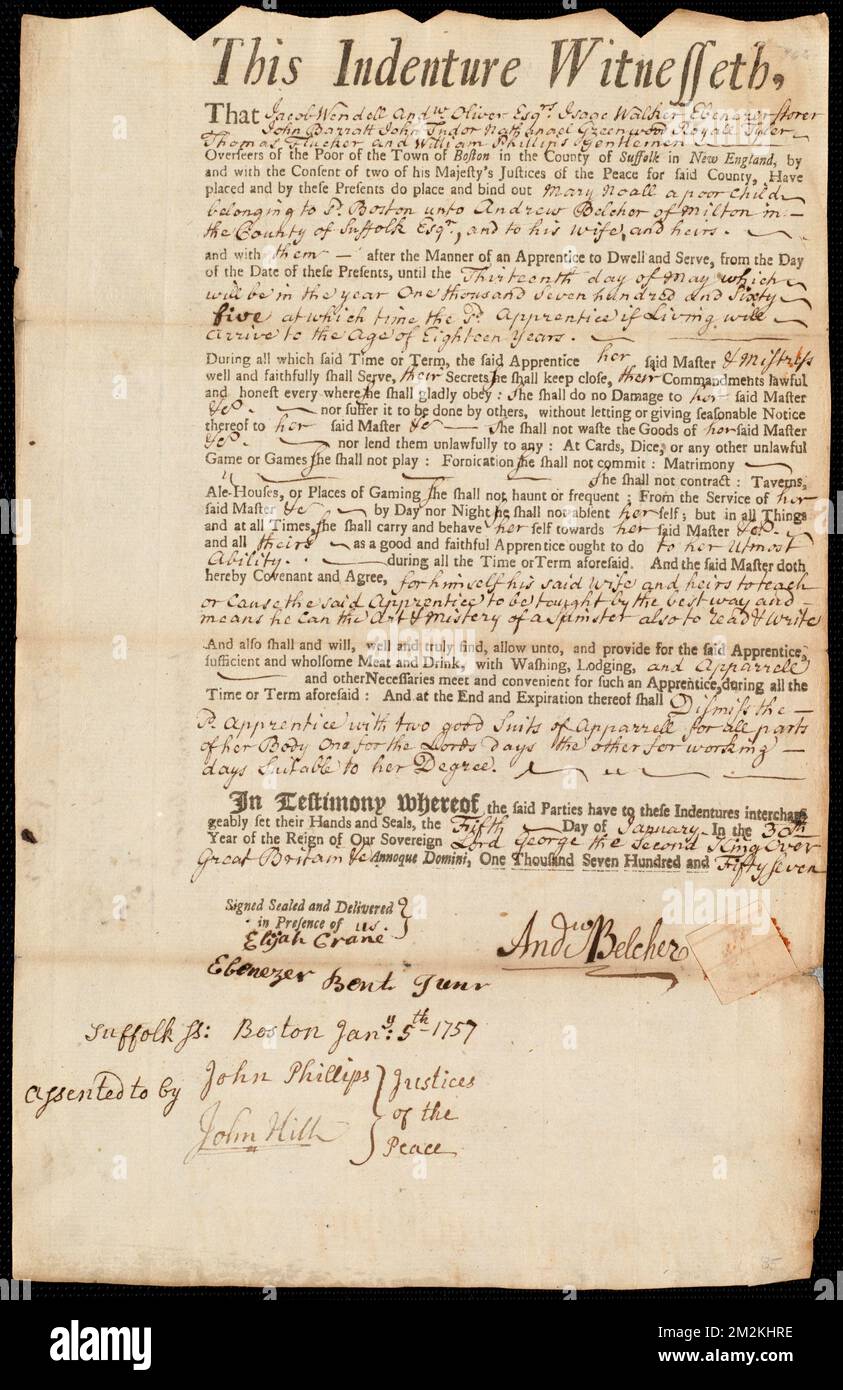 This Indenture Witnesseth,
That Jacob Wendell Andw. Oliver Esqrs Isaac Walker Ebenezer Storer
John Barratt John Tudor Nathanael Greenwood Royall Tyler
Thomas Flucker and William Phillips Gentlemen
Overseers of the Poor of the Town of Boston in the County of Suffolk in New England, by
and with the Consent of two of his Majesty's Justices of the Peace for said County, Have
placed and by these Presents do place and bind out Mary Noall a poor Child
belonging to sd. Boston unto Andrew Belcher of Milton in
the County of Suffolk Esqr, and to his wife, and heirs.
and with them after the Manner of an Apprentice to Dwell and Serve, from the Day
of the Date of these Presents, until the Thirteenth day of May which
will be in the year One thousand Seven hundred and Sixty
five at which time the sd. Apprentice if Living will
arrive to the Age of Eighteen Years.
During all which said Time or Term, the said Apprentice her said Master & Mistress
well and faithfully shall Serve, their Secrets she shall keep close, their Commandments lawful
and honest every where she shall gladly obey: She shall do no Damage to her said Master
&c. nor suffer it to be done by others, without letting or giving seasonable Notice
thereof to her said Master &c She shall not waste the Goods of her said Master
&c. nor lend them unlawfully to any: At Cards, Dice, or any other unlawful
Game or Games she shall not play: Fornication she shall not commit: Matrimony
She shall not contract: Taverns,
Ale-Houses, or Places of Gaming she shall not haunt or frequent; From the Service of her
said Master &c by Day nor Night she shall not absent her self; but in all Things
and at all Times, she shall carry and behave her self towards her said Master &c.
and all theirs as a good and faithful Apprentice ought to do to her Utmost
Ability. during all the Time or Term aforesaid. And the said Master doth
hereby Covenant and Agree, for himself his said Wife and heirs to teach
or Cause the said Apprentice to be tought by the best way and
means he Can the Art & Mistery of a Spinster also to read & write
And also shall and will, well and truly find, allow unto, and provide for the said Apprentice,
sufficient and wholsome Meat and Drink, with Washing, Lodging, and Apparrell
and other Necessaries meet and convenient for such an Apprentice, during all the
Time or Term aforesaid: And at the End and Expiration thereof shall Dismiss the
sd. Apprentice with two good Suits of Apparrell for all parts
of her Body One for the Lords days the other for working
days Suitable to her Degree.
In Testimony whereof the said Parties have to these Indentures interchan-
geably set their Hands and Seals, the Fifth Day of January In the 30th
Year of the Reign of Our Sovereign Lord George the Second King Over
Great Britain &c Annoque Domini, One Thousand Seven Hundred and Fifty Seven
Signed Sealed and Delivered
in Presence of us.
Elijah Crane
Andw Belcher
Ebenezer Bent Junr
Suffolk ss: Boston Jany: 5th 1757
Assented to by John Phillips Justices
of the
John Hill
Peace
35
alamy
Image ID: 2M2KHRE
www.alamy.com